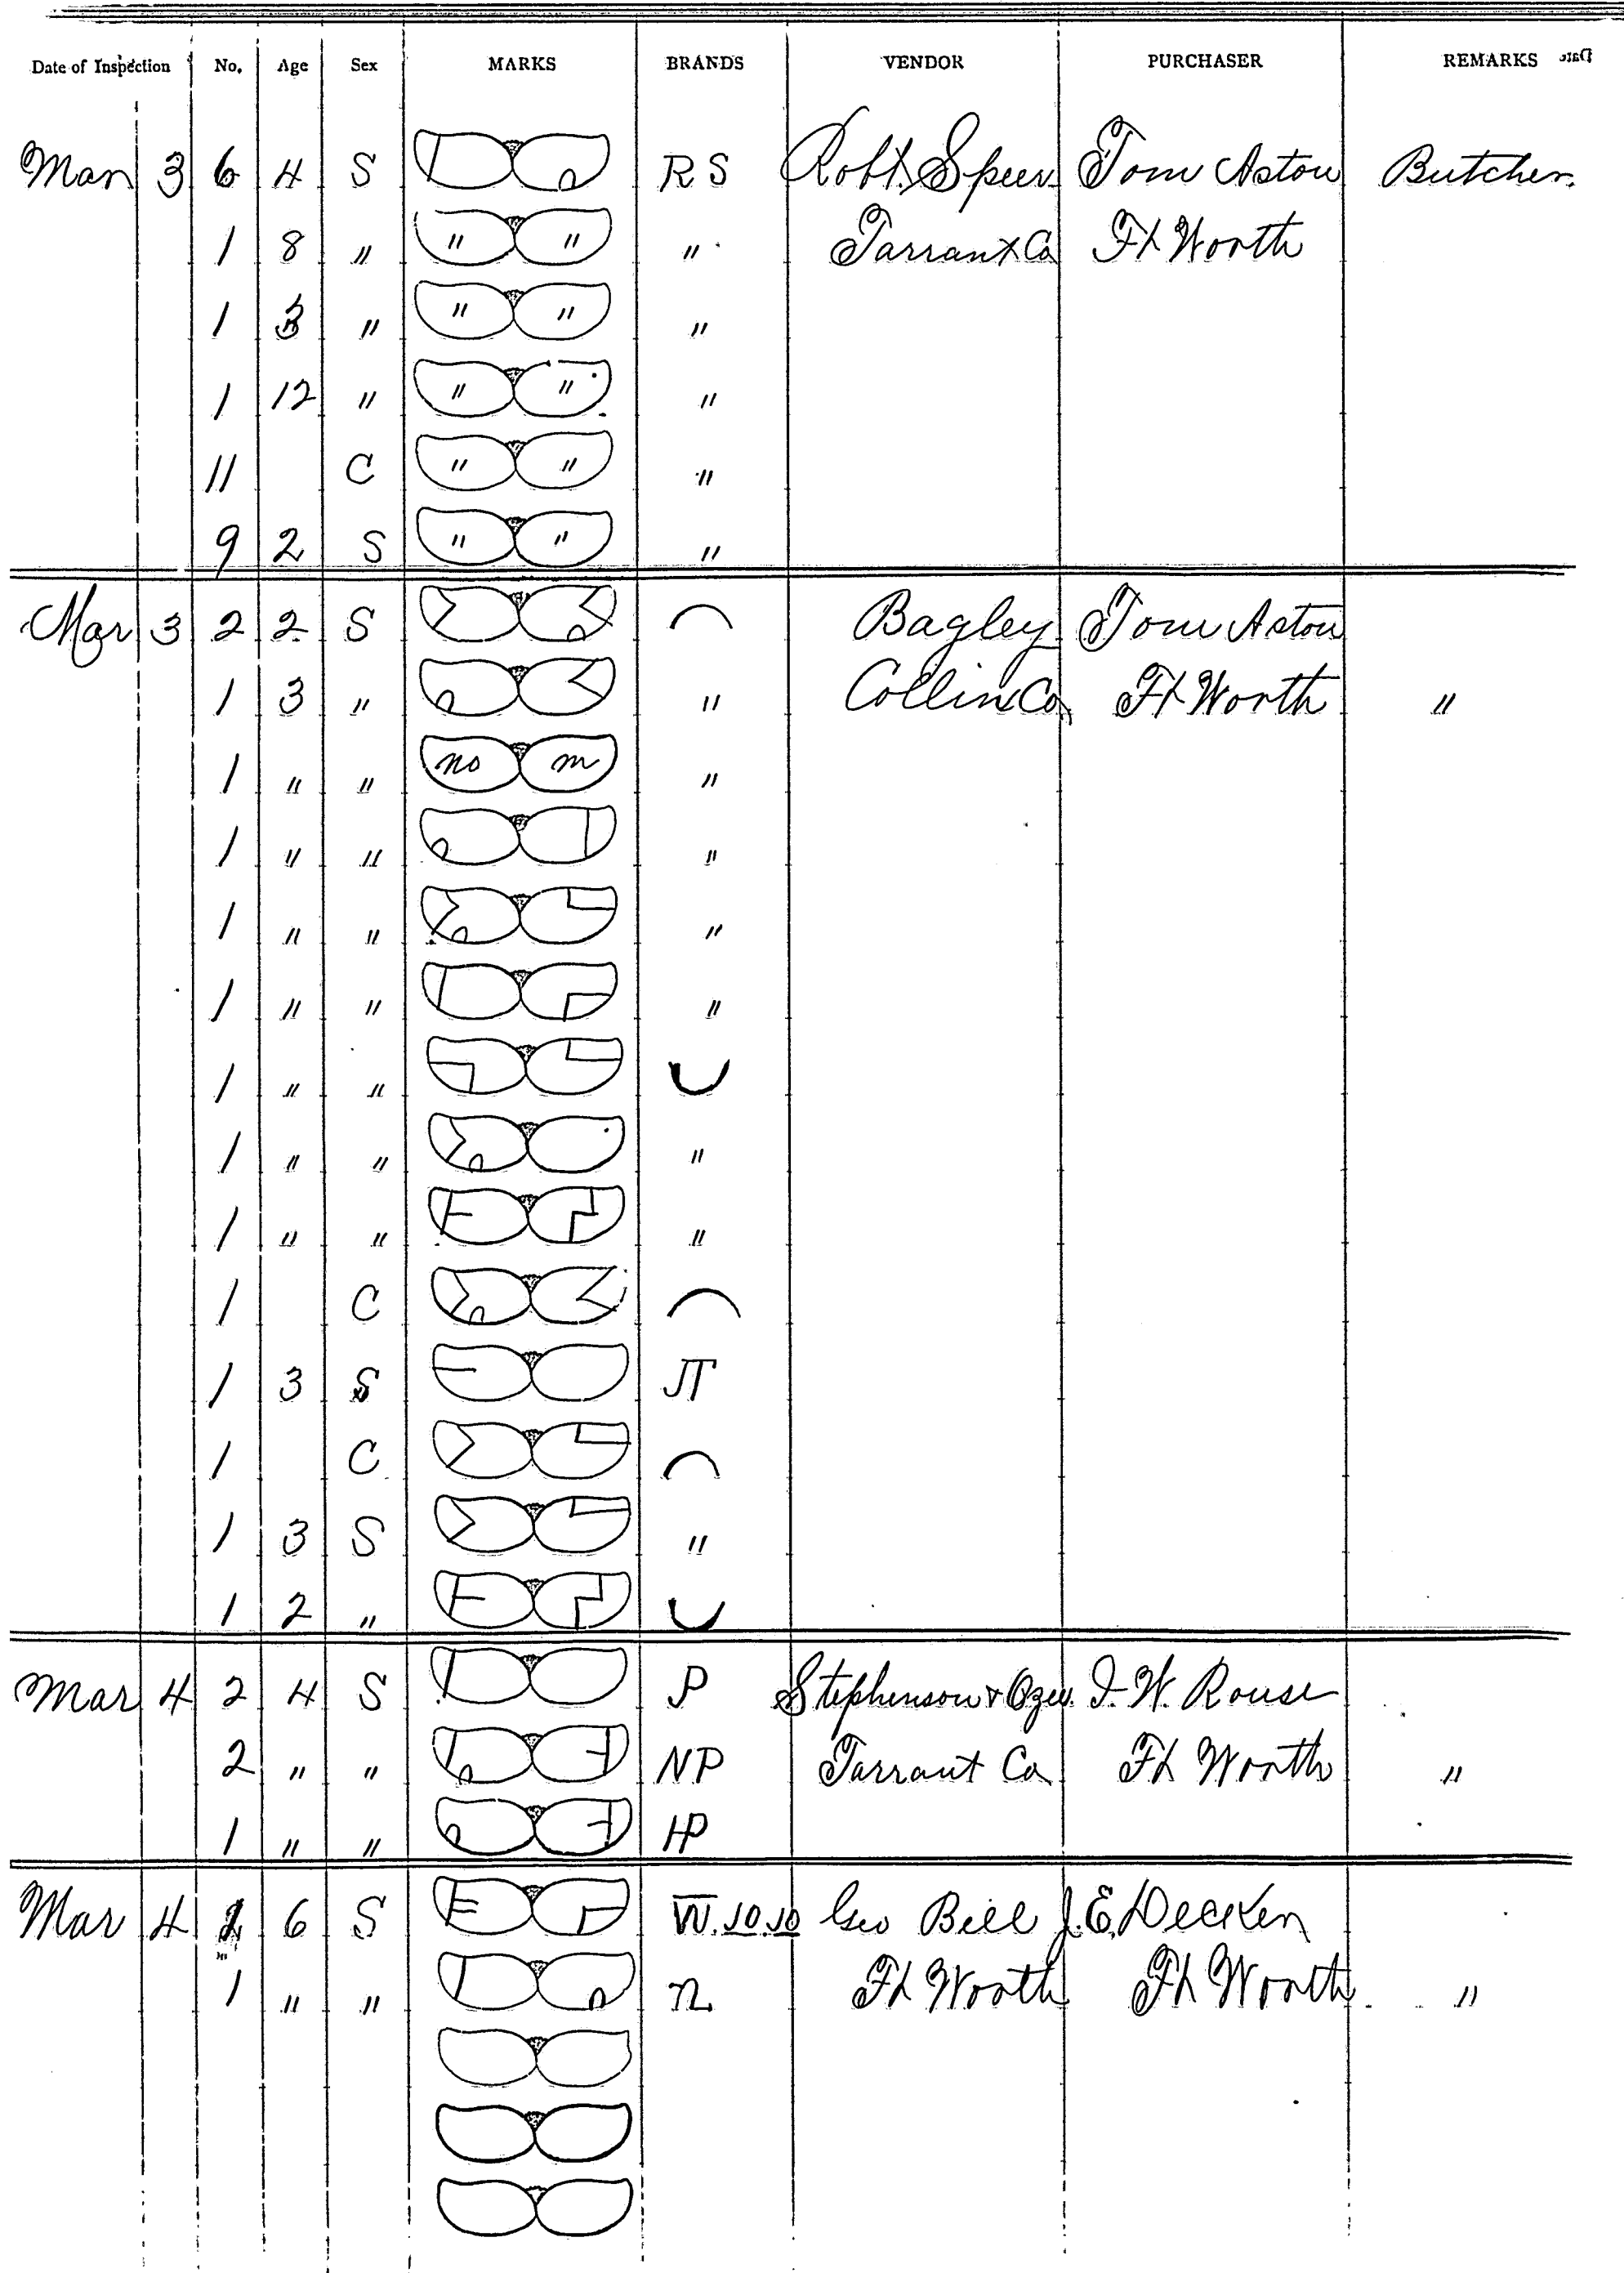 Date of Inspection No. Age Sex MARKS BRANDS VENDOR PURCHASER REMARKS Date
Mar 3 6 4 S R S Robt. Speer Tom Aston Butcher.
1 8 " " " " Tarrant Co Ft Worth
1 3 " " " "
1 12 " " " "
11 C " " "
9 2 S " " "
Mar 3 2 2 S Bagley Tom Aston
1 3 " " Collin Co, Ft Worth "
1 " " no m "
1 " " "
1 " " "
1 " " "
1 " "
1 " " "
1 " " "
1 C
1 3 S JT
1 C
1 3 S "
1 2 "
Mar 4 2 4 S P Stephenson & J. W. Rouse
2 " " NP Tarrant Co Ft Worth "
1 " " HP
Mar 4 6 S Geo Bell J. E. Decker
1 " " n Ft Worth Ft Worth "